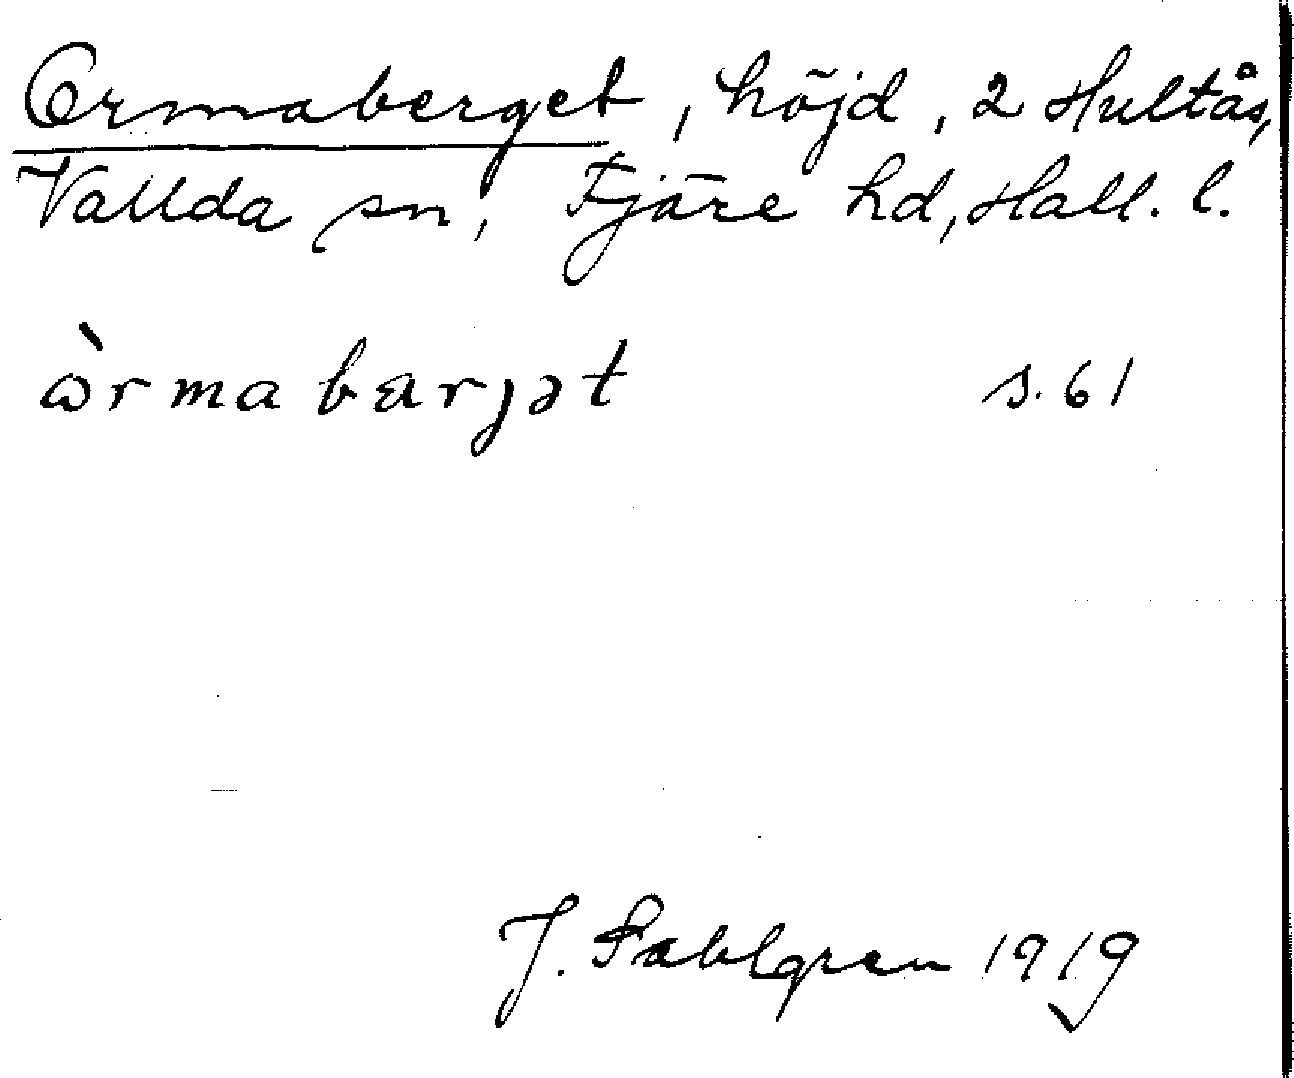 Ormaberget, höjd, 2 Hultås,
Vallda sn, Fjäre hd, Hall. l.
ɷ̀rmabærjət s. 61
J. Sahlgren 1919